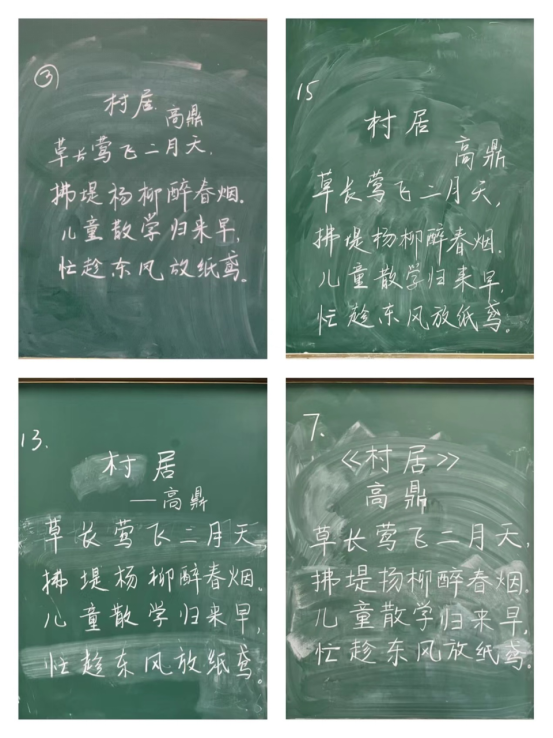 ③
村居
高鼎
草长莺飞二月天,
拂堤杨柳醉春烟.
儿童散学归来早,
忙趁东风放纸鸢。
15
村居
高鼎
草长莺飞二月天,
拂堤杨柳醉春烟.
儿童散学归来早,
忙趁东风放纸鸢。
13.
村居
——高鼎
草长莺飞二月天,
拂堤杨柳醉春烟。
儿童散学归来早,
忙趁东风放纸鸢。
7.
《村居》
高鼎
草长莺飞二月天,
拂堤杨柳醉春烟。
儿童散学归来早,
忙趁东风放纸鸢。